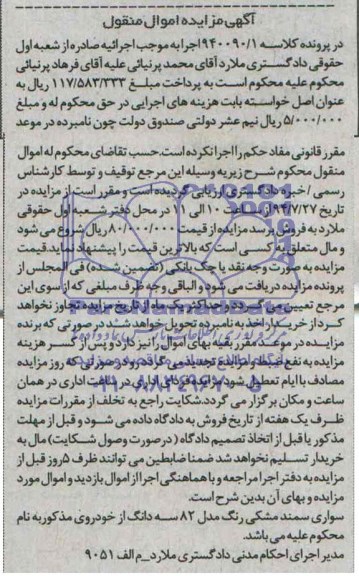 آگهی مزایده اموال منقول
در پرونده کلاسه ۹۴۰۰۹۰/۱ اجرا به موجب اجرائیه صادره از شعبه اول
حقوقی دادگستری ملارد آقای محمد پرنیائی علیه آقای فرهاد پرنیائی
محکوم علیه محکوم است به پرداخت مبلغ ۱۱۷/۵۸۳/۳۳۳ ریال به
عنوان اصل خواسته بابت هزینه های اجرایی در حق محکوم له و مبلغ
۵/۰۰۰/۰۰۰ ریال نیم عشر دولتی صندوق دولت چون نامبرده در موعد
مقرر قانونی مفاد حکم را اجرا نکرده است، حسب تقاضای محکوم له اموال
منقول محکوم شرح زیر به وسیله این مرجع توقیف و توسط کارشناس
رسمی / خبره دادگستری ارزیابی گردیده است و مقرر است از مزایده در
تاریخ ۹۴/۷/۲۷ از ساعت ۱۰ الی ۱۱ در محل دفتر شعبه اول حقوقی
ملارد به فروش برسد مزایده از قیمت ۸۰/۰۰۰/۰۰۰ ریال شروع می شود
و مال متعلق به کسی است که بالاترین قیمت را پیشنهاد نماید. قیمت
مزایده به صورت وجه نقد یا چک بانکی (تضمین شده) فی المجلس از
برنده مزایده دریافت می شود و الباقی وجه ظرف مبلغی که از سوی این
مرجع تعیین می گردد و حداکثر یک ماه از تاریخ مزایده تجاوز نخواهد
کرد از خریدار اخذ به نامبرده تحویل خواهد شد در صورتی که برنده
مزایده در موعد مقرر بقیه بهای اموال را نپردازد پس از کسر هزینه
مزایده به نفع ضبط و مزایده تجدید می گردد و در صورتی که روز مزایده
مصادف با ایام تعطیل شود مزایده فردای اداری در ساعت اداری در همان
ساعت و مکان برگزار می گردد. شکایت راجع به تخلف از مقررات مزایده
ظرف یک هفته از تاریخ فروش به دادگاه داده می شود و قبل از مهلت
مذکور یا قبل از اتخاذ تصمیم دادگاه (درصورت وصول شکایت) مال به
خریدار تسلیم نخواهد شد ضمنا ضابطین می توانند ظرف ۵ روز قبل از
مزایده به دفتر اجرا مراجعه و با هماهنگی اجرا از اموال بازدید و اموال مورد
مزایده و بهای آن بدین شرح است.
سواری سمند مشکی رنگ مدل ۸۲ سه دانگ از خودروی مذکور به نام
محکوم علیه می باشد.
مدیر اجرای احکام مدنی دادگستری ملارد_م الف ۹۰۵۱